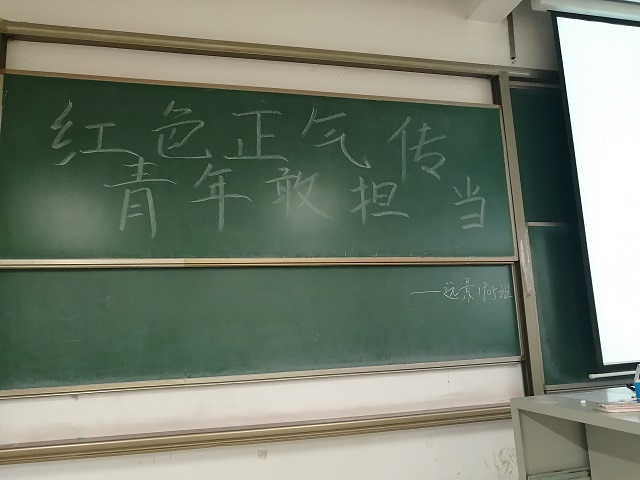 红色正气传
青年敢担当
——远景1705班